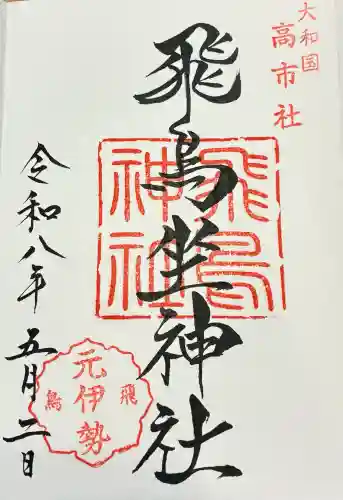 大和国
高市社
飛鳥坐神社
飛鳥
神社
令和八年
五月二日
元伊勢
飛鳥